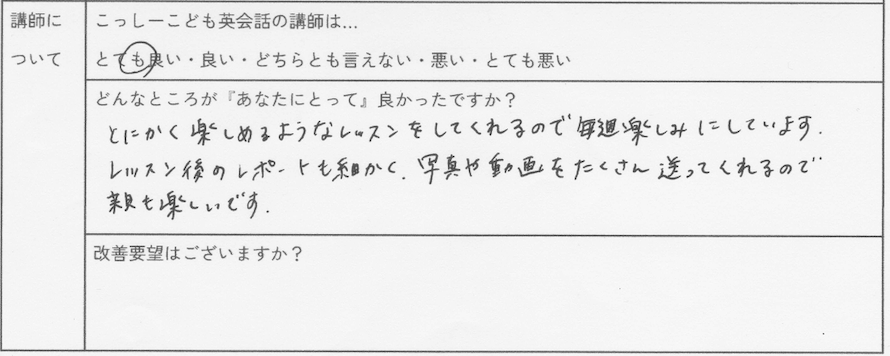 講師に
ついて
こっしーこども英会話の講師は…
とても良い・良い・どちらとも言えない・悪い・とても悪い
どんなところが『あなたにとって』良かったですか？
とにかく楽しめるようなレッスンをしてくれるので毎週楽しみにしています.
レッスン後のレポートも細かく、写真や動画をたくさん送ってくれるので
親も楽しいです.
改善要望はございますか？